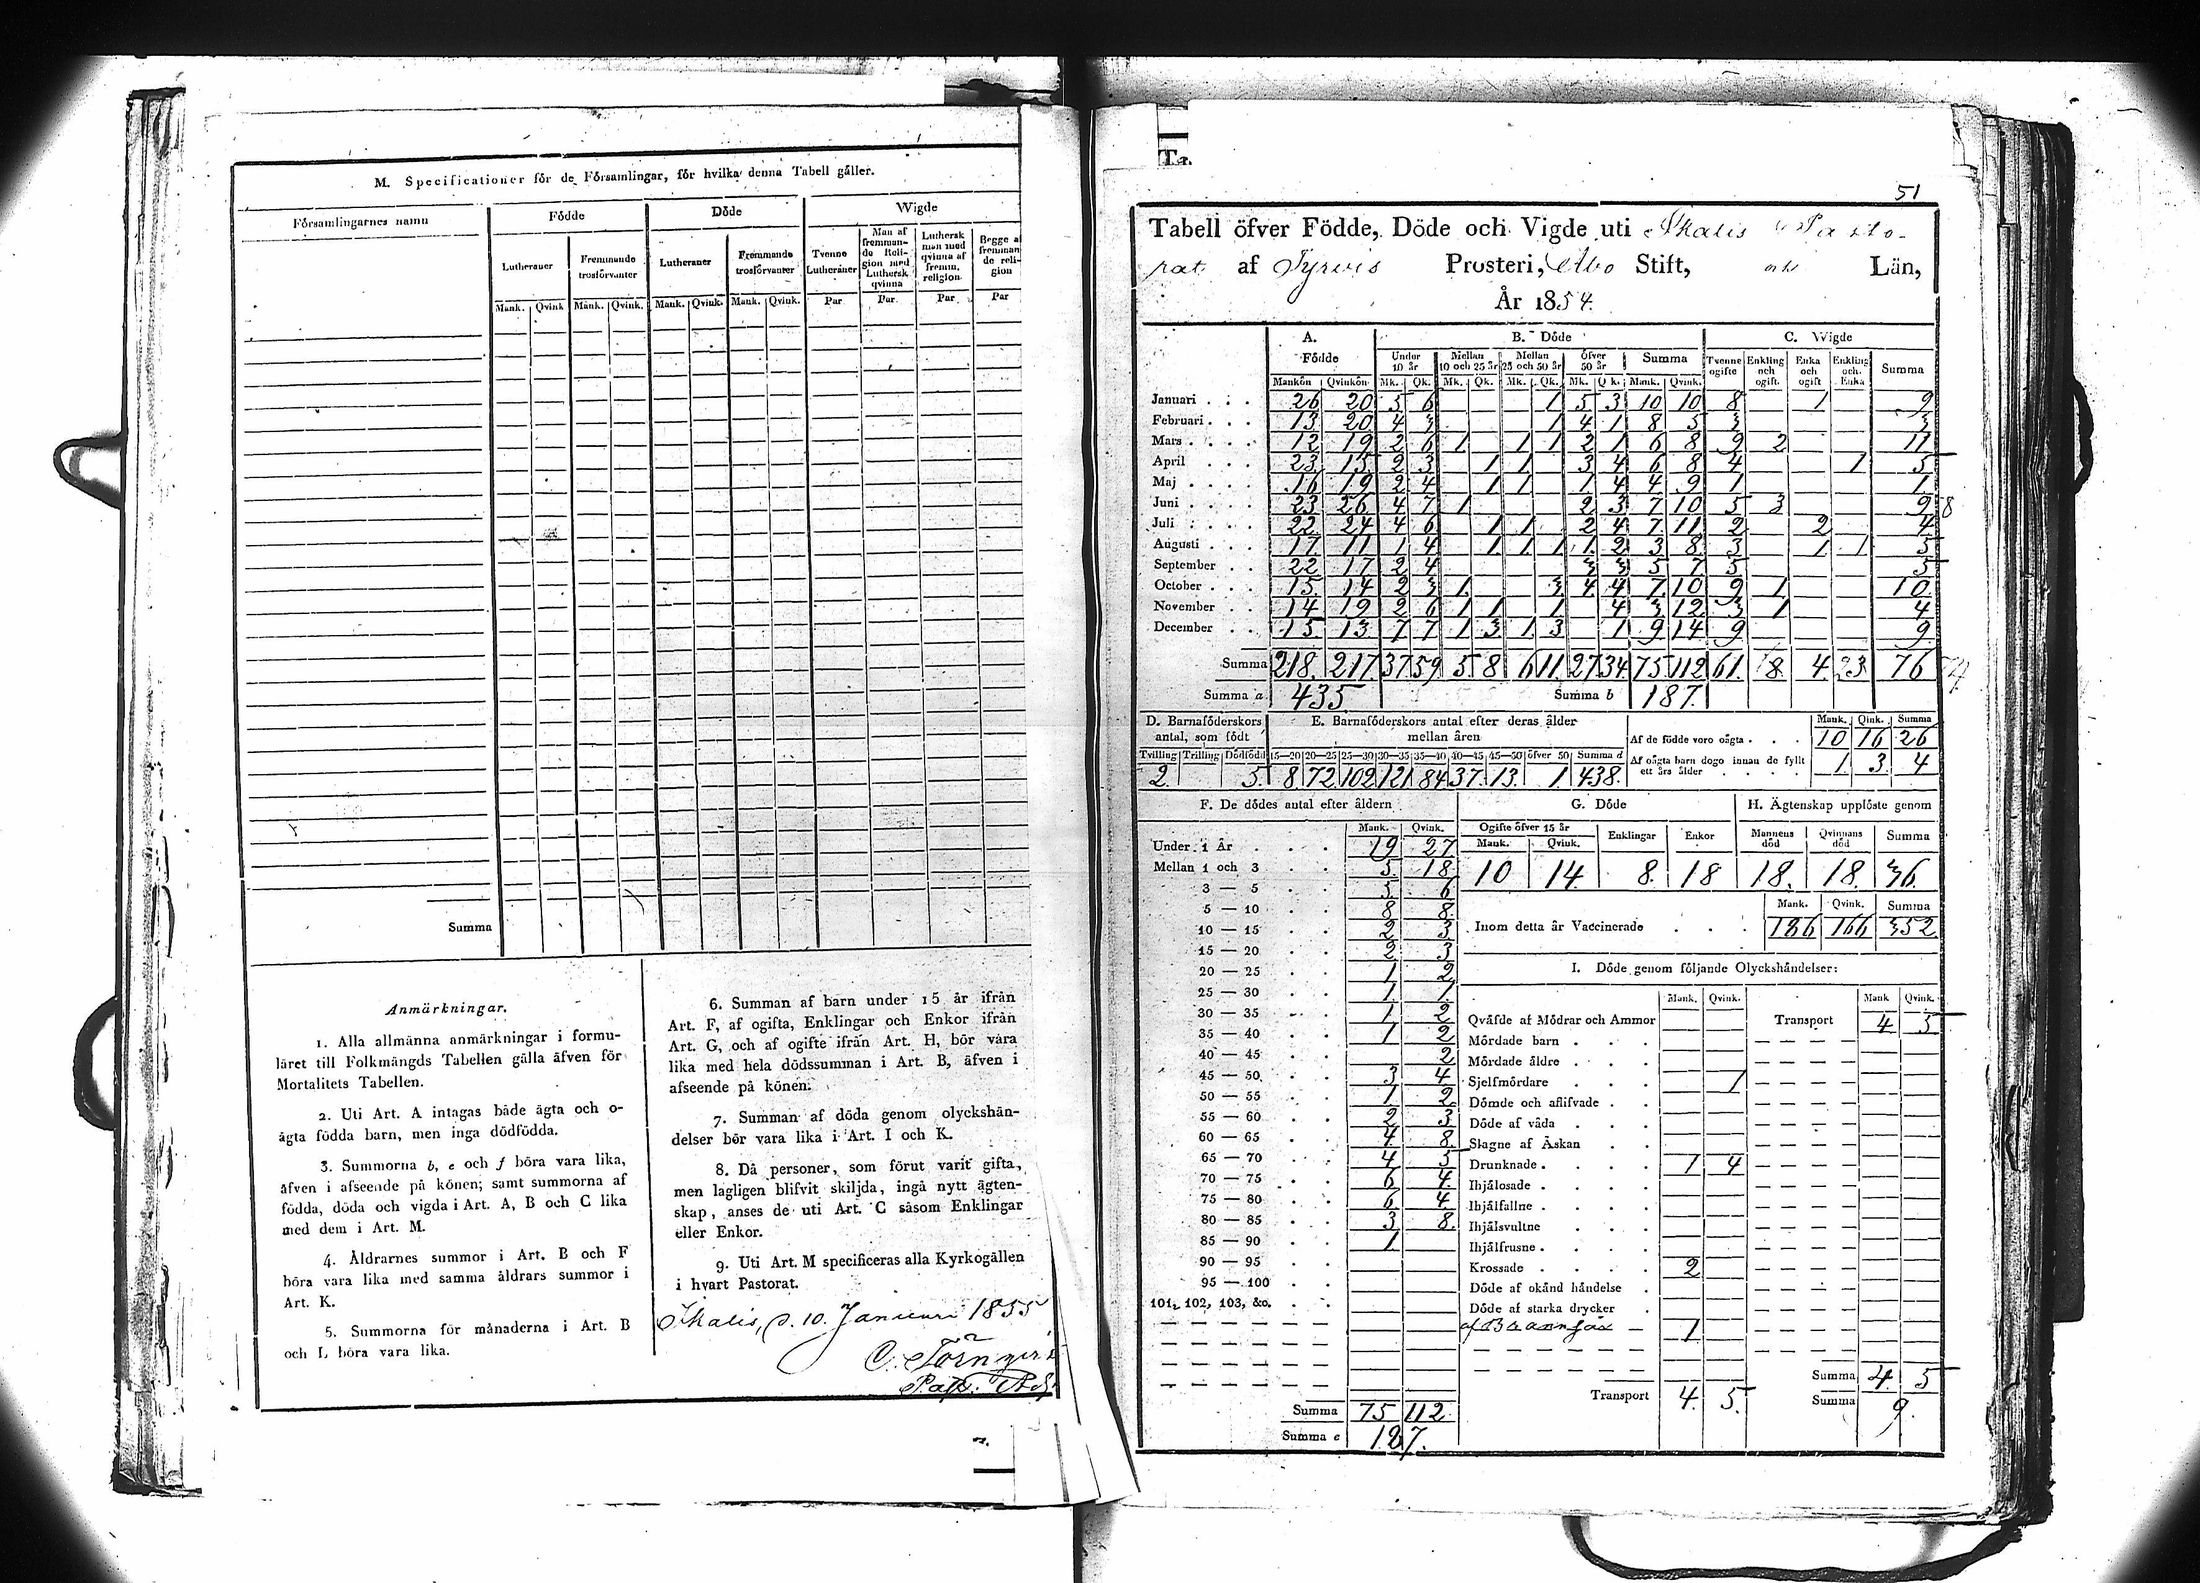 M. Specificationer för de Församlingar, för hvilka denna Tabell gäller.
Församlingarnes namn | Födde | Döde | Wigde
Lutheraner | Fremmande trosförvanter | Lutheraner | Fremmande trosförvanter | Tvenne Lutheraner | Man af fremmande Religion med Luthersk qvinna | Luthersk man med qvinna af fremm. religion | Begge af fremmande religion
Mank. | Qvink | Mank. | Qvink. | Mank. | Qvink. | Mank. | Qvink. | Par | Par | Par | Par
Summa
Anmärkningar.
1. Alla allmänna anmärkningar i formu-
läret till Folkmängds Tabellen gälla äfven för
Mortalitets Tabellen.
2. Uti Art. A intagas både ägta och o-
ägta födda barn, men inga dödfödda.
3. Summorna b, e och f böra vara lika,
äfven i afseende på könen; samt summorna af
födda, döda och vigda i Art. A, B och C lika
med dem i Art. M.
4. Åldrarnes summor i Art. B och F
böra vara lika med samma åldrars summor i
Art. K.
5. Summorna för månaderna i Art. B
och L böra vara lika.
6. Summan af barn under 15 år ifrån
Art. F, af ogifta, Enklingar och Enkor ifrån
Art. G, och af ogifte ifrån Art. H, bör vara
lika med hela dödssumman i Art. B, äfven i
afseende på könen.
7. Summan af döda genom olyckshän-
delser bör vara lika i Art. I och K.
8. Då personer, som förut varit gifta,
men lagligen blifvit skiljda, ingå nytt ägten-
skap, anses de uti Art. C såsom Enklingar
eller Enkor.
9. Uti Art. M specificeras alla Kyrkogällen
i hvart Pastorat.
Ikalis, d. 10. Januari 1855
Ta.
51
Tabell öfver Födde, Döde och Vigde uti Ikalis Pasto-
rat af Tyrvis Prosteri, Åbo Stift, Län,
År 1854.
A. Födde | B. Döde | C. Wigde
Under 10 år | Mellan 10 och 25 år | Mellan 25 och 50 år | Öfver 50 år | Summa | Tvenne ogifte | Enkling och ogift. | Enka och ogift | Enkling och Enka | Summa
Mankön | Qvinkön | Mk. | Qk. | Mk. | Qk. | Mk. | Qk. | Mk. | Qk. | Mank. | Qvink.
Januari . . . 26 20 5 6 1 5 3 10 10 8 1 9
Februari . . . 13 20 4 3 1 4 1 8 5 3 3
Mars . . . . 12 19 2 6 1 1 1 2 1 6 8 9 2 11
April . . . 23 15 2 3 1 1 3 4 6 8 4 1 5
Maj . . . . 16 19 2 4 1 1 1 4 4 9 1 1
Juni . . . . 23 26 4 7 1 2 3 7 10 5 3 9 8
Juli . . . . 22 24 4 6 1 1 2 4 7 11 2 2 4
Augusti . . . 17 11 1 4 1 1 1 1 2 3 8 3 1 1 5
September . . 22 17 2 4 3 3 5 7 5 5
October . . . 15 14 2 3 1 3 4 4 7 10 9 1 10
November . . 14 19 2 6 1 1 1 4 3 12 3 1 4
December . . 15 13 7 7 1 3 1 3 1 9 14 9 9
Summa 218. 217 37 59 5 8 6 11 27 34 75 112 61. 8. 4 3 76
Summa a 435 Summa b 187.
D. Barnaföderskors antal, som födt | E. Barnaföderskors antal efter deras ålder mellan åren | Mank. | Qink. | Summa
Af de födde voro oägta . . . 10 16 26
Tvilling | Trilling | Dödfödd | 15—20 | 20—25 | 25—30 | 30—35 | 35—40 | 40—45 | 45—50 | öfver 50 | Summa d
2. 5. 8 72 102 121 84 37. 13. 1. 438.
Af oägta barn dogo innan de fyllt ett års ålder . . . . 1. 3. 4
F. De dödes antal efter åldern
Mank. Qvink.
Under 1 År . . . 19 27
Mellan 1 och 3 . . 5. 18
3 — 5 . . 5 6
5 — 10 . . 8 8.
10 — 15 . . 2 3
15 — 20 . . 2 3
20 — 25 . . 1 2
25 — 30 . . 1. 1.
30 — 35 . . 1 2
35 — 40 . . 1 2
40 — 45 . . 2
45 — 50 . . 3 4
50 — 55 . . 1 2
55 — 60 . . 2 3
60 — 65 . . 4 8.
65 — 70 . . 4 5
70 — 75 . . 6 4.
75 — 80 . . 6 4
80 — 85 . . 3 8.
85 — 90 . . 1.
90 — 95 . .
95 — 100 . .
101, 102, 103, &c. . .
Summa 75 112
Summa e 187.
G. Döde
Ogifte öfver 15 år | Enklingar | Enkor
Mank. | Qvink.
10 14 8. 18
H. Ägtenskap upplöste genom
Mannens död | Qvinnans död | Summa
18. 18. 36
Mank. Qvink. Summa
Inom detta år Vaccinerade . . . 186 166 352
I. Döde genom följande Olyckshändelser:
Mank. Qvink. Mank Qvink.
Qväfde af Mödrar och Ammor Transport 4 5
Mördade barn . . .
Mördade äldre . . .
Sjelfmördare . . 1
Dömde och aflifvade . .
Döde af våda . . .
Slagne af Åskan . .
Drunknade . . . . 1 4
Ihjälosade . . . .
Ihjälfallne . . . .
Ihjälsvultne . . .
Ihjälfrusne . . . .
Krossade . . . . 2
Döde af okänd händelse .
Döde af starka drycker .
1
Summa 4 5
Transport 4. 5. Summa 9.